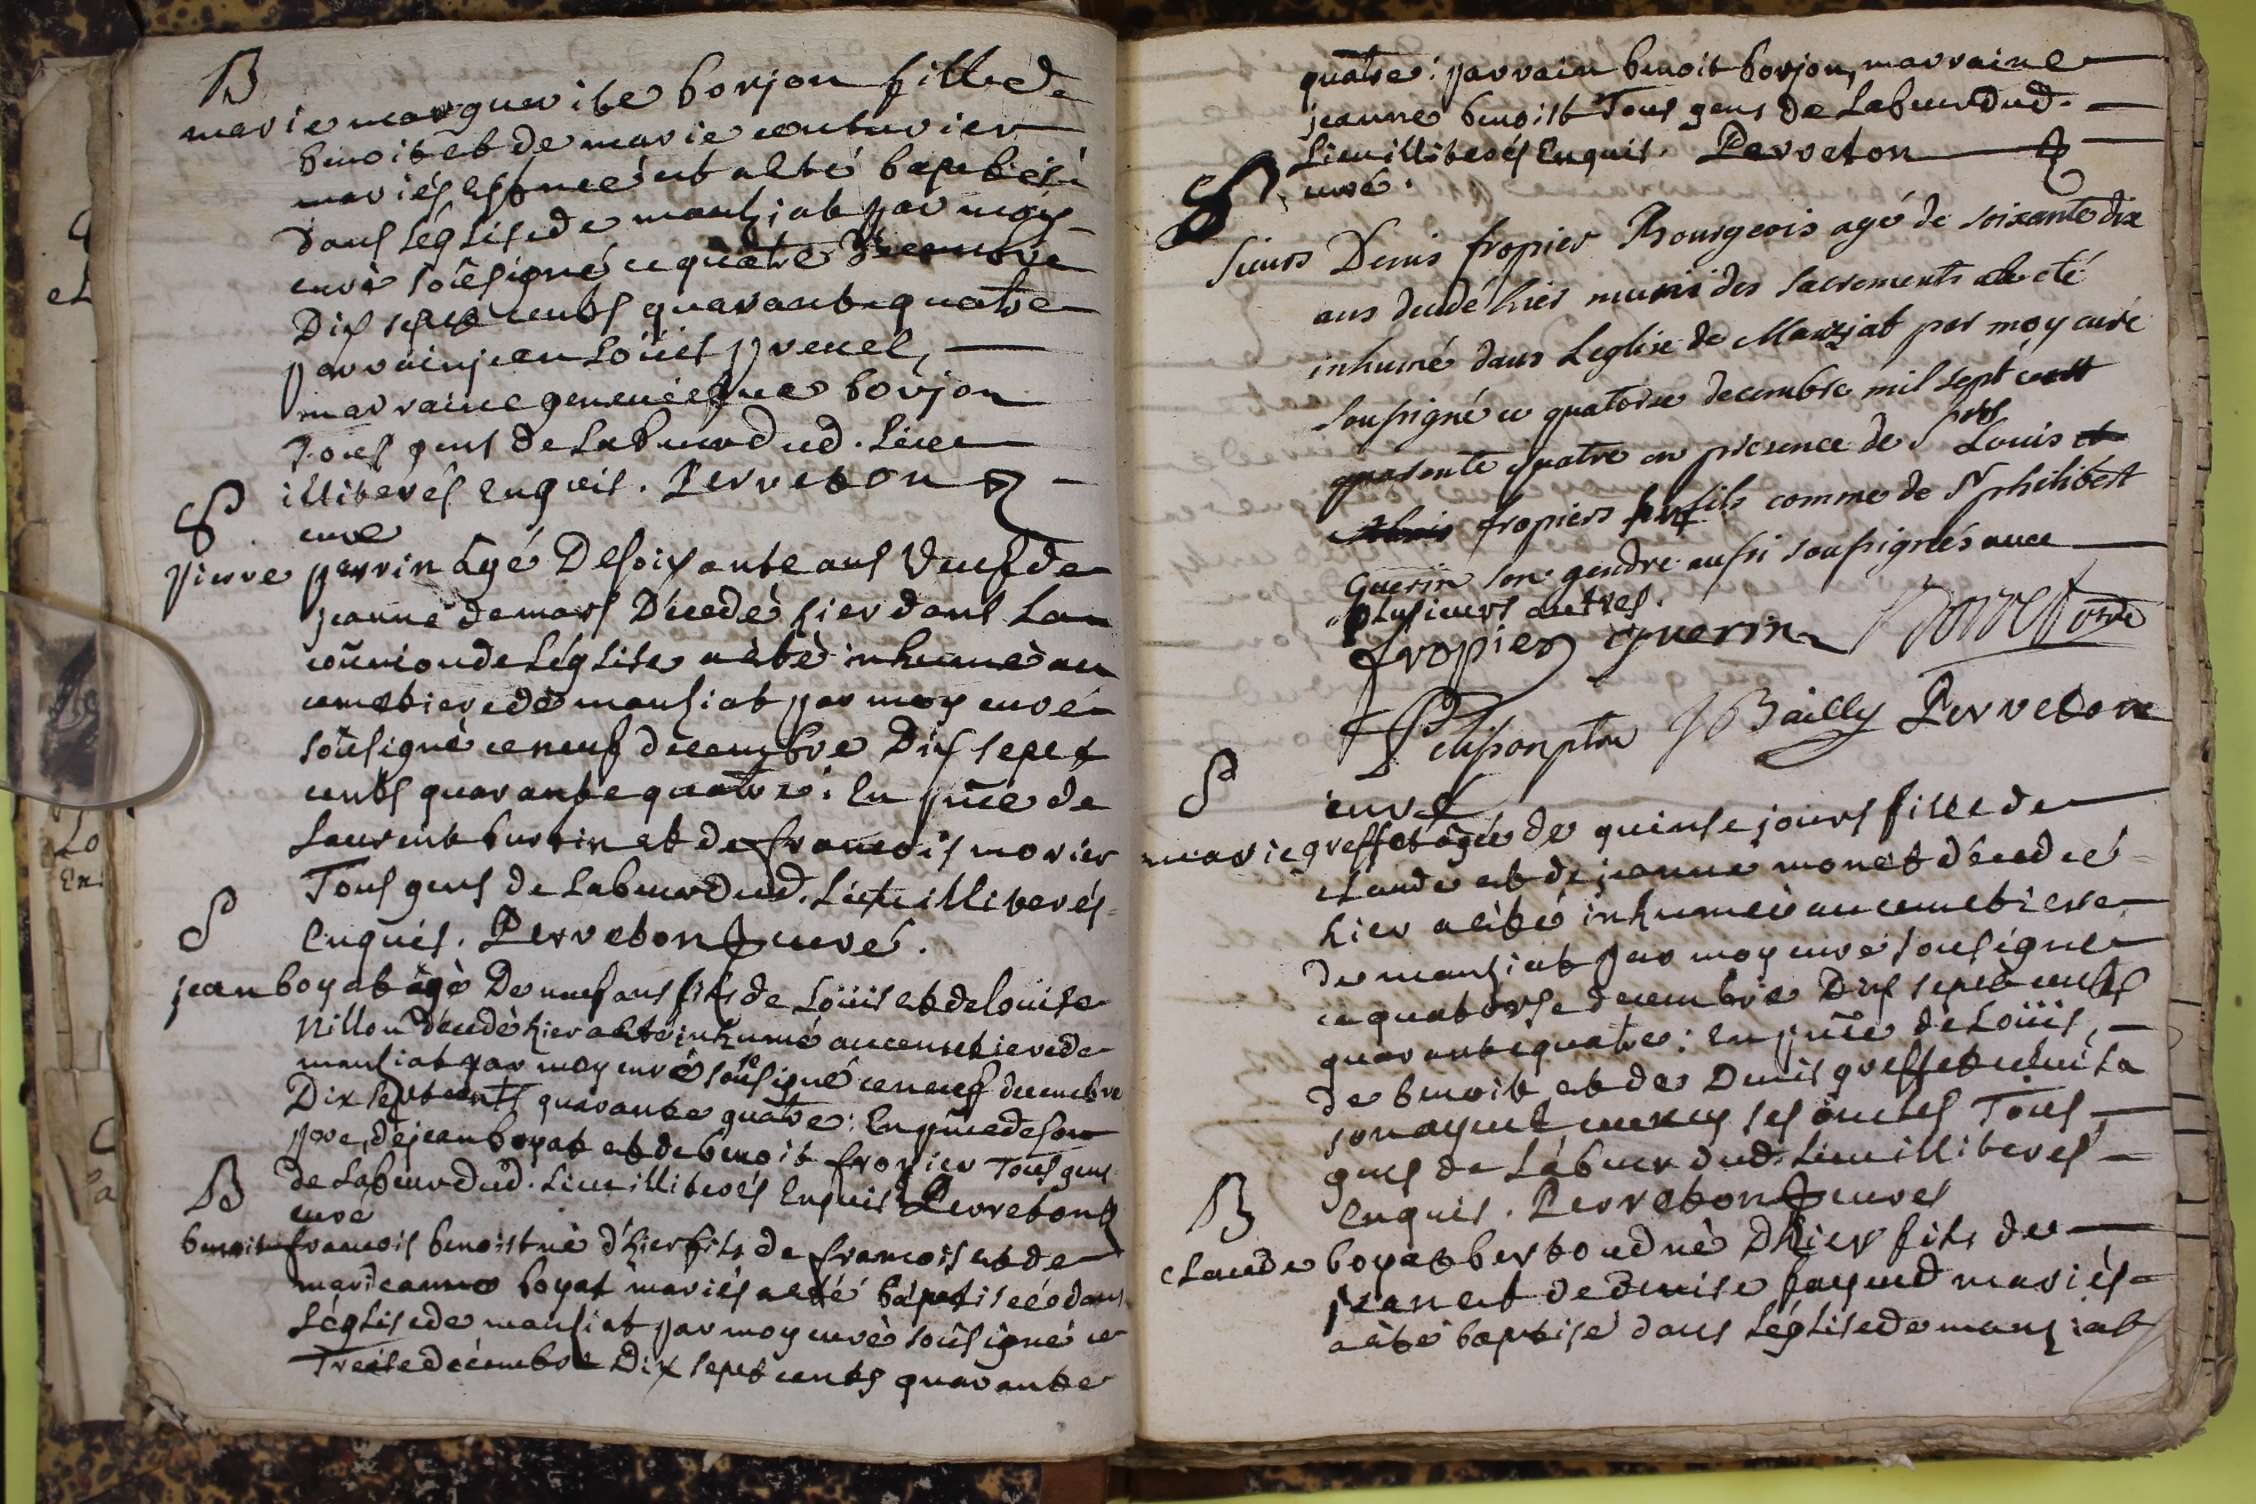 B
marie marguerite borjon fille de
benoit et de marie couturier
mariés et a été baptisé
dans léglise de manziat par moy
curé soùsigné ce quatre decembre
Dix sept cents quarante quatre
parrain jean loüis prevel,
marraine genevieve borjon
Tous gens de labeur dud. lieu
illiterés enquis. Perreton
S. curé
pierre perrin agé De soixante ans veuf de
jeanne demars Décedé hier dans La
coũnion de Léglise a été inhumé au
cemetiere de manziat par moy curé
soùsigné ce neuf decembre Dix sept
cents quarante quatre : En pñce de
Laurent burtin et de francois morier
Tous gens de labeur dud. Lieu illiterés
S
enquis. Perreton curé.
jean boyat agé De neuf ans fils de Loüis et de loüise
Nillon décedé hier a été inhumé au cemetiere de
manziat par moy curé soùsigné ce neuf decembre
Dix sept cents quarante quatre : En pñce de son
pere, de jean boyat et de benoit fropier Tous gens
B
de labeur dud. Lieu illiterés Enquis Perreton
curé
benoit francois benoist né d'hier fils de francois et de
marieanne boyat mariés a été baptiseé dans
Léglise de manziat par moy curé soùsigné ce
Treise décembre Dix sept cents quarante
quatre : parrain benoit borjon, marraine
jeanne benoist Tous gens de Labeur dud.
Lieu illiterés Enquis. Perreton
S. curé.
Sieurs Denis fropier Bourgeois agé de soixante dix
ans decédé hier muni des sacrements a eté
inhumé dans Leglise de Manziat par moy curé
soussigné ce quatorze decembre mil sept cent
quarente quatre en presence de Srs Louis et
fropiers fils comme de Sr philibert
Guerin son gendre aussi soussignés avec
plusieurs autres.
fropier Guerin
Pelisson ptre JBailly Perreton
S
curé
marie greffet agée de quinse jours fille de
claude et de jeanne monet décedée
hier a été inhumée au cemetiere
de manziat par moy curé sousigné
ce quatorse decembre Dix sept cents
quarante quatre : en pñce de Loüis,
de benoit et de Denis greffet celui la
son ayeul ceux cy ses oncles Tous
gens de Labeur dud. Lieu illiterés
B
enquis. Perreton curé
claude boyat bertoud né D'hier fils de
jean et de denise fayend mariés
a été baptisé dans Léglise de manziat